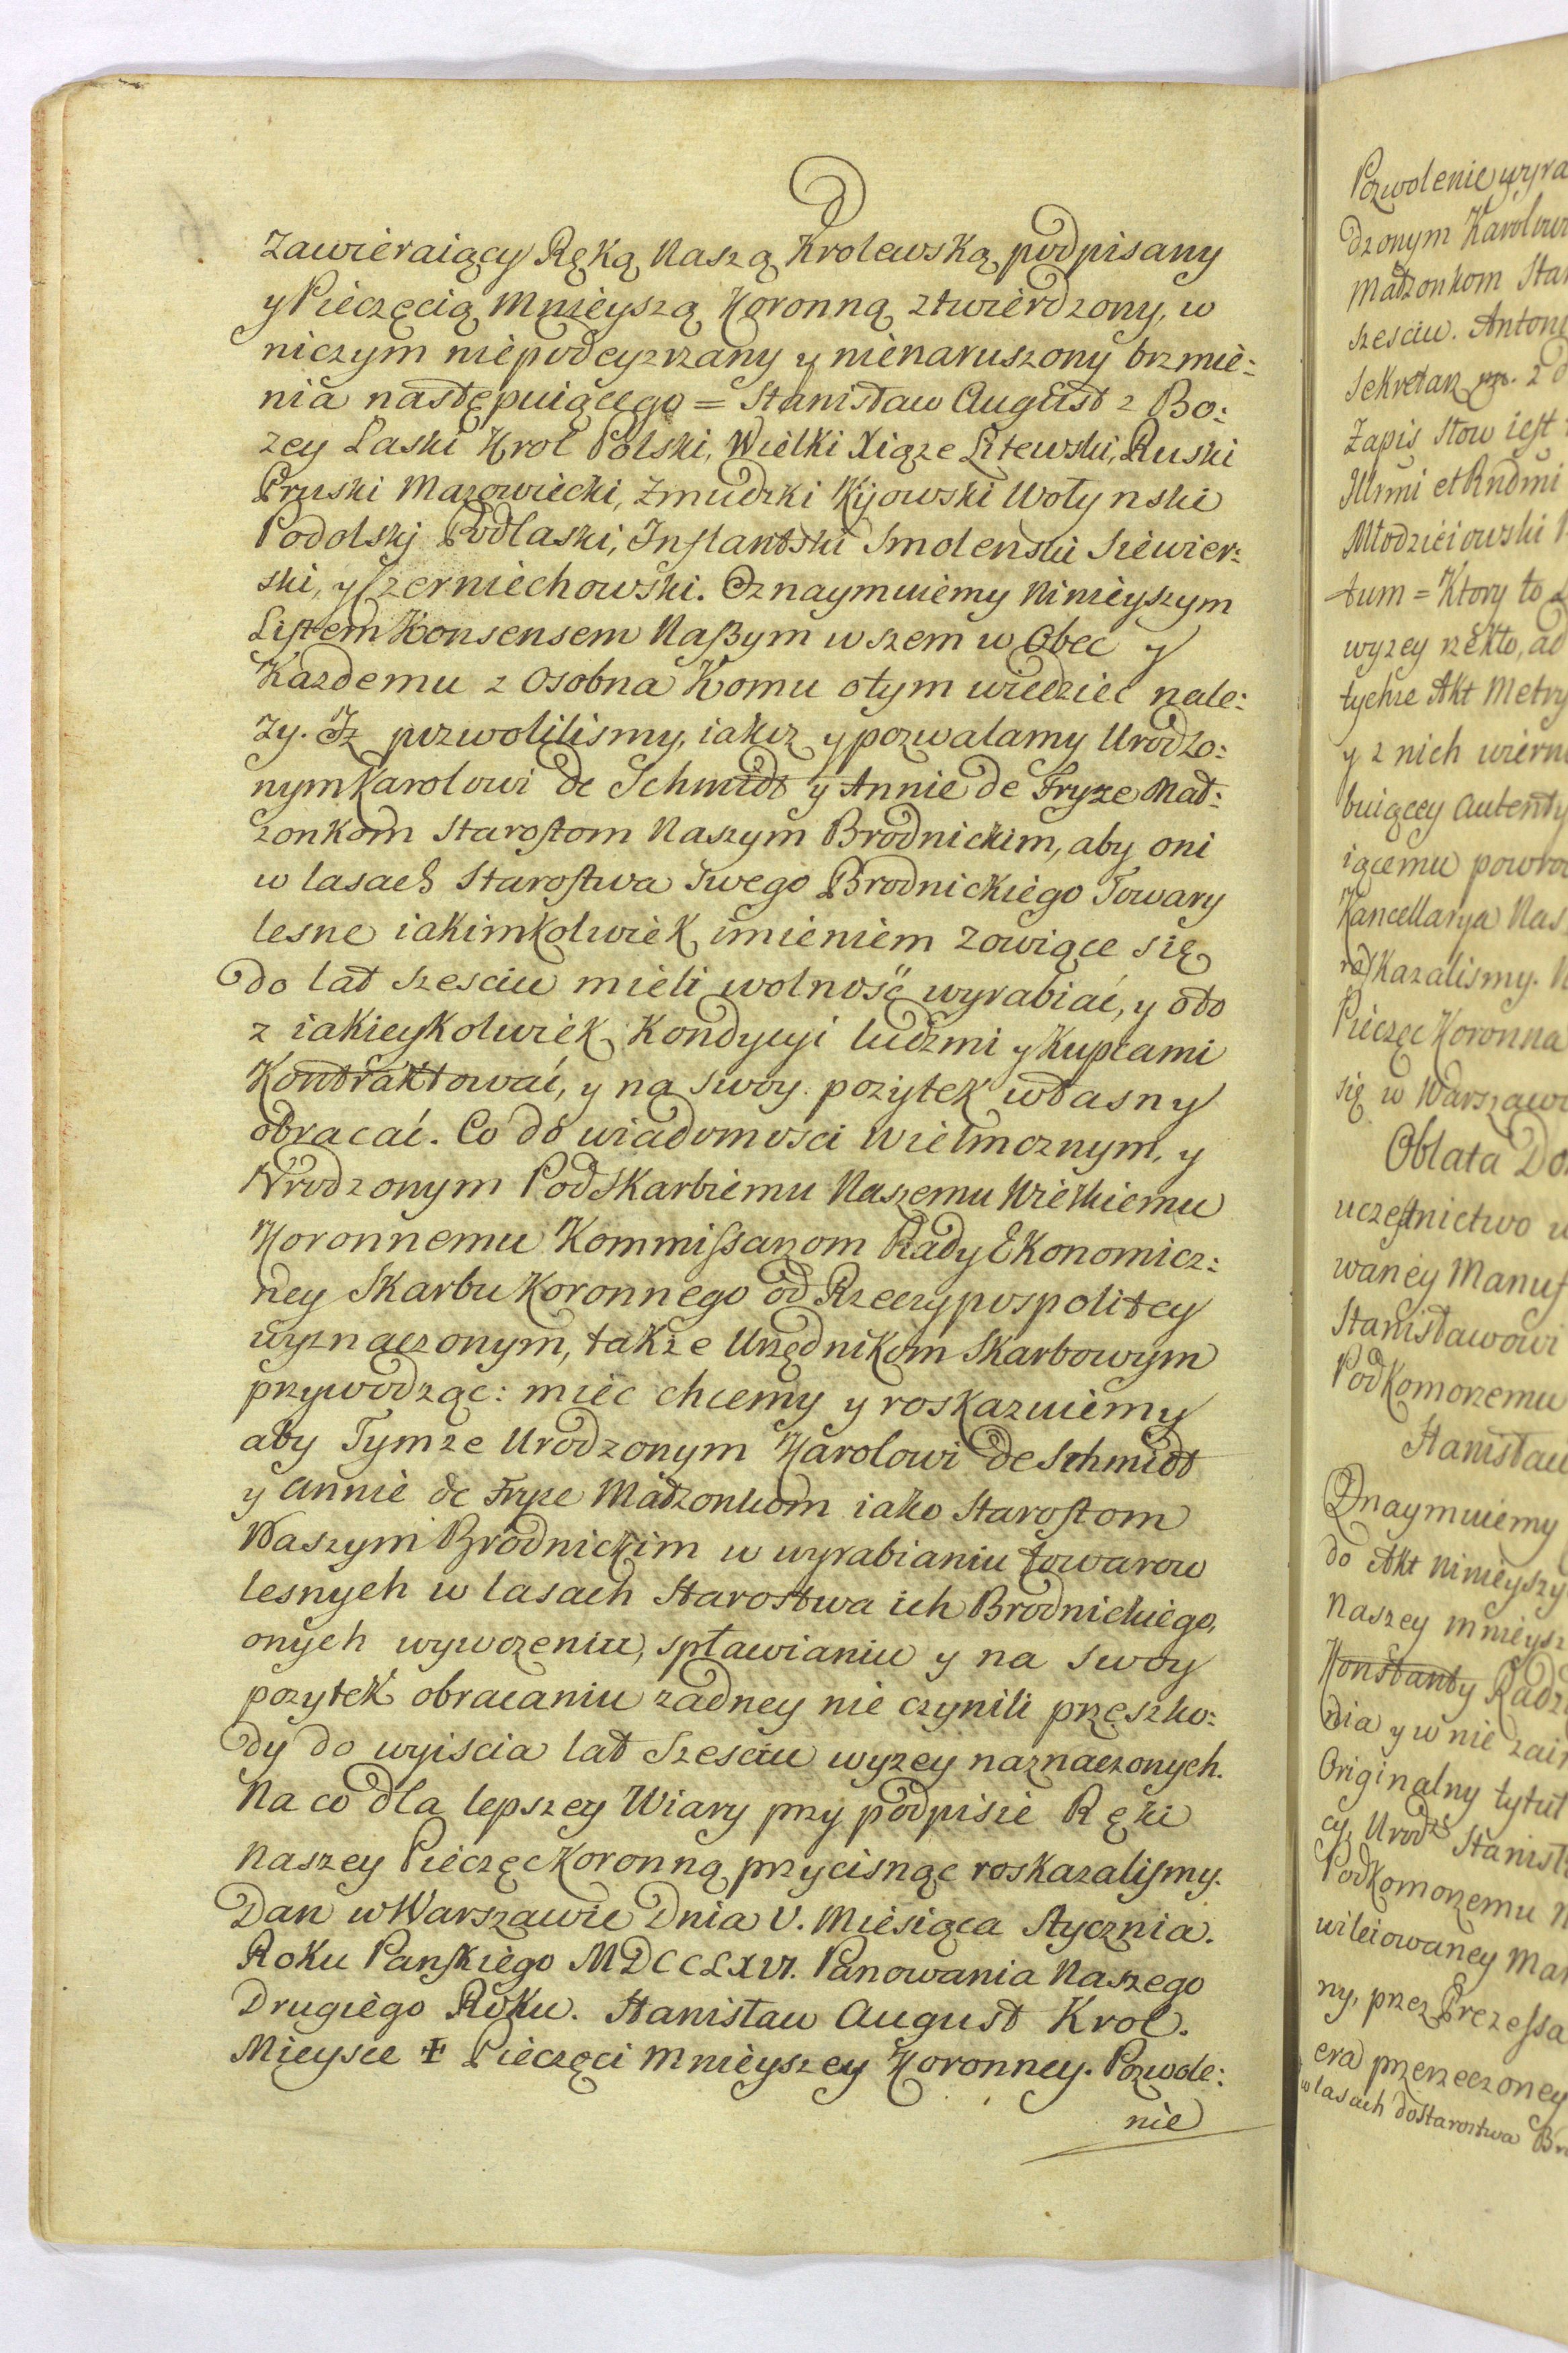 Zawieraiący Ręką Naszą Krolewską podpisany
y Pieczęcią Mnieyszą Koronną ztwierdzony, w
niczym niepodeyzrzany y nienaruszony brzmie:
nia następuiącego = Stanisław August z Bo:
zey Laski Krol Polski, Wielki Xiąze Litewski, Ruski
Pruski Mazowiecki, Zmudzki Kijowski Wołynski
Podolskj Podlaski, Inflantski Smolenski Siewier:
ski, y Czerniechowski. Oznaymuiemy Ninieyszym
Listem Konsensem Naszym wszem w Obec y
Kazdemu z Osobna Komu otym wiedziec nale:
zy. Iz pozwolilismy, iakoz y pozwalamy Urodzo:
nym Karolowi de Schmidt y Annie de Fryze Mał:
zonkom Starostom Naszym Brodnickim, aby oni
w lasach Starostwa swego Brodnickiego Towary
lesne iakimkolwiek imieniem zowiące się
do lat szesciu mieli wolność wyrabiać, y oto
z iakieykolwiek Kondycyi ludzmi y kupcami
Kontraktować, y na swoy pozytek własny
obracać. Co do wiadomosci Wielmoznym, y
Urodzonym Podskarbiemu Naszemu Wielkiemu
Koronnemu Kommissarzom Rady Ekonomicz:
ney Skarbu Koronnego od Rzeczypospolitey
wyznaczonym, takze Urzędnikom Skarbowym
przywodząc: miec chcemy y roskazuiemy
aby Tymze Urodzonym Karolowi de Schmidt
y Annie de Fryze Małzonkom iako Starostom
Naszym Brodnickim w wyrabianiu towarow
lesnych w lasach Starostwa ich Brodnickiego,
onych wywozeniu, spławianiu y na swoy
pozytek obracaniu zadney nie czynili przeszko:
dy do wyiscia lat Szesciu wyzey naznaczonych.
Na co dla lepszey Wiary przy podpisie Ręki
Naszey Pieczęc Koronną przycisnąc roskazalismy.
Dan w Warszawie Dnia V. Miesiąca Stycznia.
Roku Panskiego MDCCLXVI. Panowania Naszego
Drugiego Roku. Stanisław August Krol.
Mieysce ✝ Pieczęci Mnieyszey Koronney. Pozwole:
nie
Pozwolenie wyra
dzonym Karolowi
Małzonkom Star
szesciu. Antoni
Sekretarz mp. z
Zapis Stow iest
Illmi et Rndmi
Młodzieiowski
tum = Ktory to
wyzey rzekto, ad
tychze Akt Metry
y z nich wiern
buiącey autenty
iącemu powro
Kancellarya Nas
roskazalismy. N
Pieczęc Koronna
się w Warszawi
Oblata Do
uczestnictwo w
waney Manuf
Stanisławowi
Podkomorzemu
Stanisław
Oznaymuiemy
do Akt Ninieyszy
Naszey mnieysz
Konstanty Radz
nia y w nie zain
Originalny tytuł
cy, Urodz Stanisł
Podkomorzemu N
wileiowaney Man
ny, przez Prezessa
era przerzeczoney
w lasach do Starostwa Bro